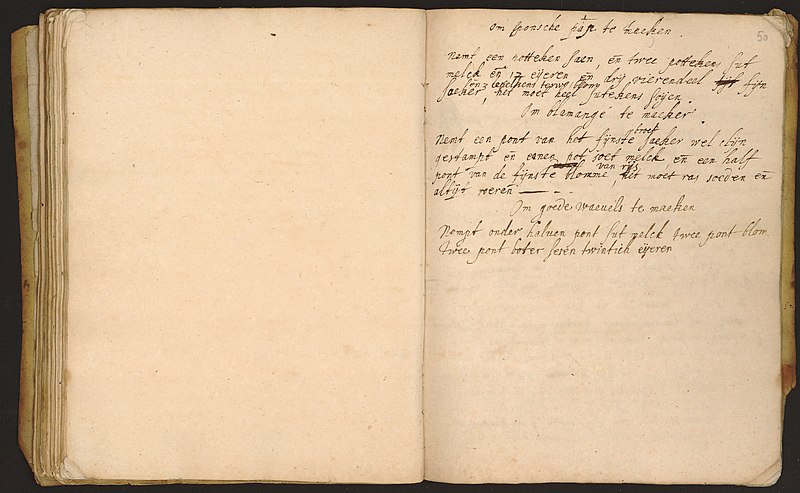 50
Om sponsche pap te maeken
Nemt een potteken saen, en twee pottekens sut
melck en 17 eijeren en drij vierendeel fijn
en 3 lepelkens terwe blom
saeker, het moet heel sutekens
Om blamangé te maeken
Nemt een pont van het fijnste broot saeker wel clijn
gestampt en eenen pot soet melck en een half
pont van de fijnste blomme van rijs, het moet ras soeden en
altijt roeren
Om goede waevels te maeken
Nempt onder halven pont sut melck twee pont blom
twee pont boter sesen twintich eijeren